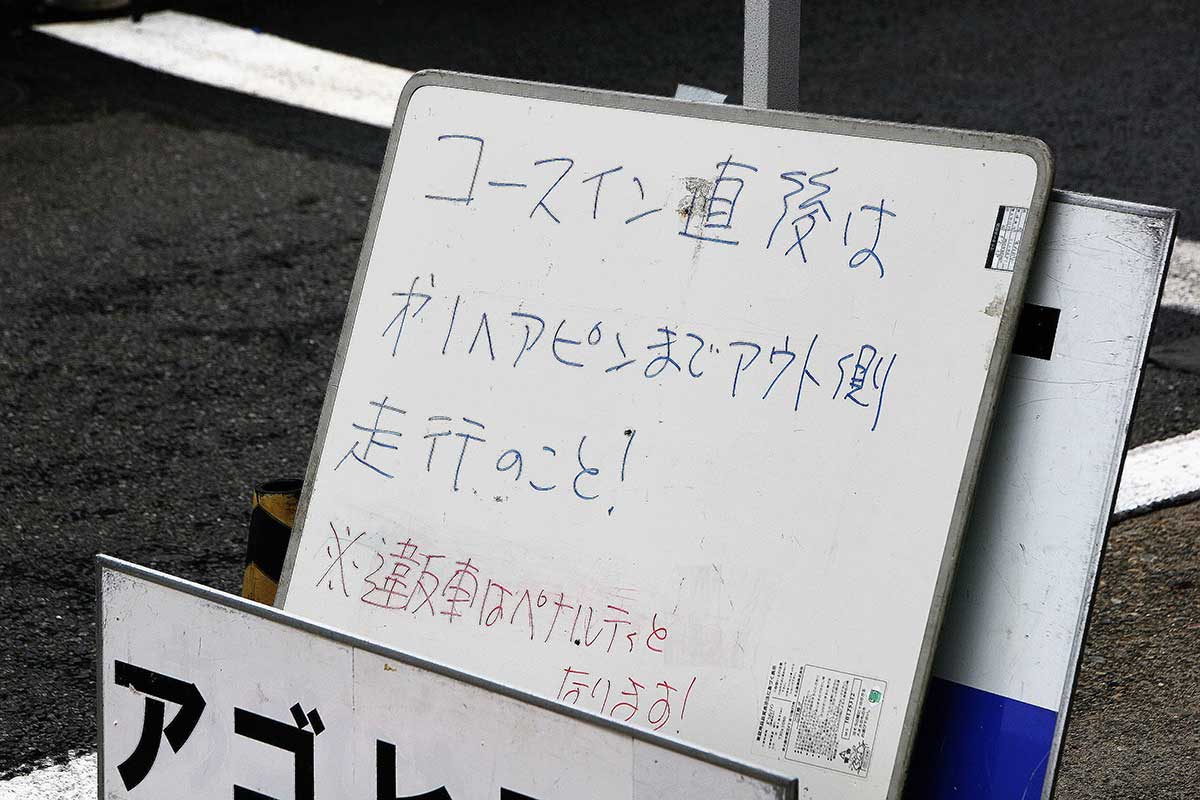 コースイン直後は
㐧1ヘアピンまでアウト側
走行のこと!
※違反車はペナルティと
なります!
アゴ